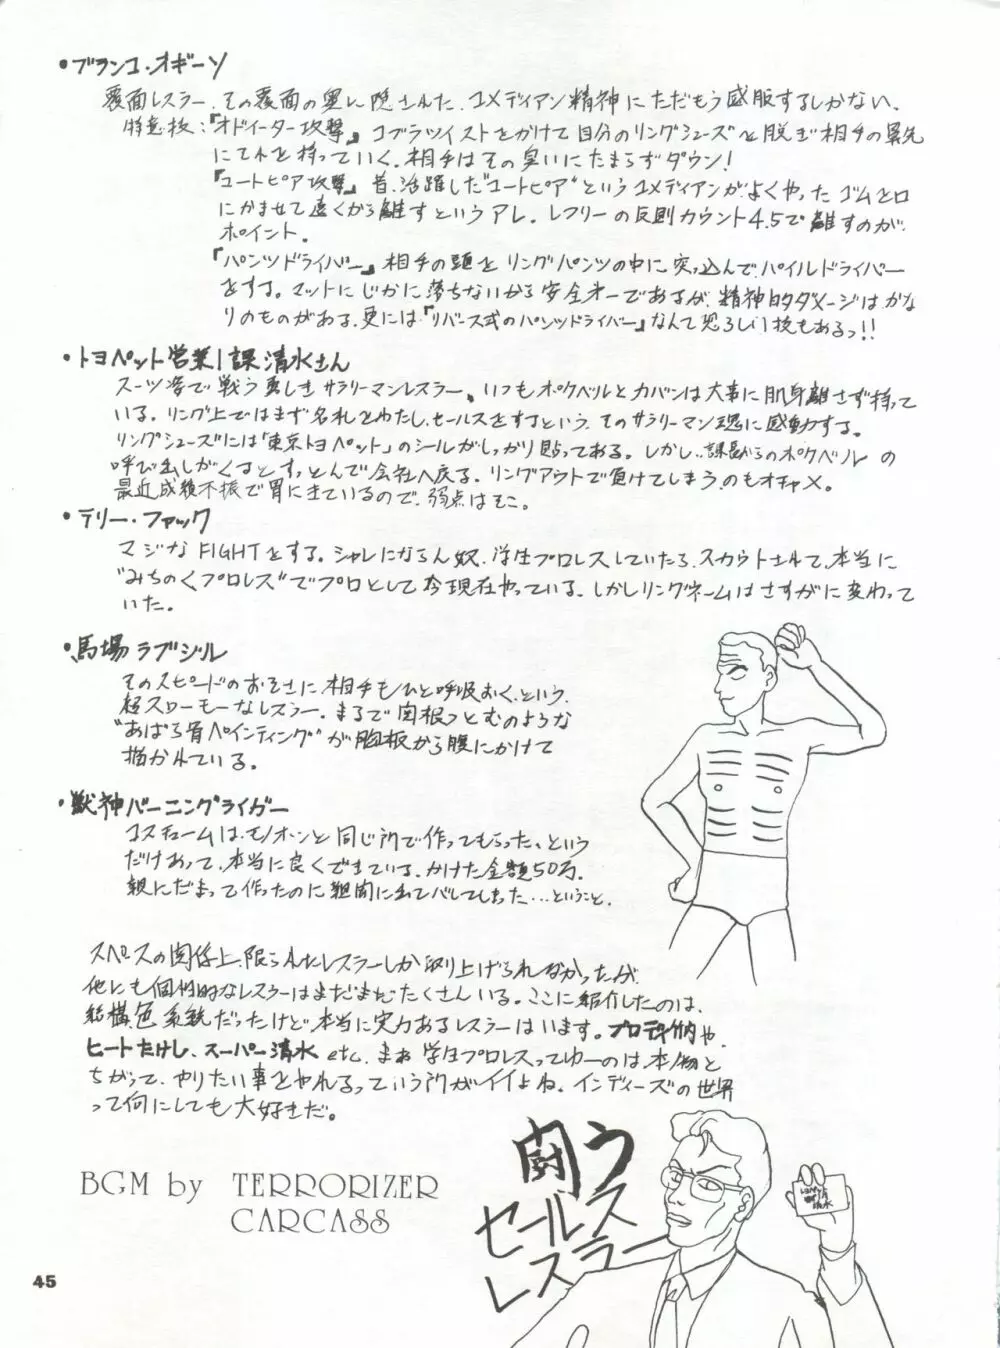 ・ブランコ・オギーソ
覆面レスラー、その覆面の奥に隠された、コメディアン精神にただもう感服するしかない。
特意技：『オドイーター攻撃』コブラツイストをかけて自分のリングシューズを脱ぎ相手の鼻先
にそれを持っていく。相手はその臭いにたまらずダウン！
『ユートピア攻撃』昔、活躍した"ユートピア"というコメディアンがよくやったゴムを口
にかませて遠くから離すというアレ。レフリーの反則カウント4.5で離すのが、
ポイント。
『パンツドライバー』相手の頭をリングパンツの中に突っ込んで、パイルドライバー
をする。マットにじかに落ちないから安全オーであるが、精神的ダメージはかな
りのものがある。更には『リバース式のパンツドライバー』なんて恐ろしい技もあるっ!!
・トヨペット営業1課清水さん
スーツ姿で戦う勇しきサラリーマンレスラー、いつもポケベルとカバンは大事に肌身離さず持って
いる。リング上ではまず名札をわたし、セールスをするという、そのサラリーマン魂に感動する。
リングシューズには「東京トヨペット」のシールがしっかり貼ってある。しかし、課長からのポケベルの
呼び出しがくるとすっとんで会社へ戻る。リングアウトで負けてしまうのもオチャメ。
最近成績不振で胃にきているので、弱点はそこ。
・テリー・ファック
マジなFIGHTをする。シャレにならん奴、学生プロレスしていたら、スカウトされて、本当に
"みちのくプロレス"でプロとして今現在やっている。しかしリングネームはさすがに変わって
いた。
・馬場ラブジル
そのスピードのおそさに相手もひと呼吸おく、という、
超スローモーなレスラー。まるで関根つとむのような
"あばら骨ペインティング"が胸板から腹にかけて
描かれている。
・獣神バーニングライガー
コスチュームは、モノホンと同じ所で作ってもらった、という
だけあって、本当に良くできている。かけた金額50万。
親にだまって作ったのに新聞に出てバレてしまった…ということ。
スペースの関係上、限られたレスラーしか取り上げられなかったが、
他にも個性的なレスラーはまだまだたくさんいる。ここに紹介したのは、
結構色系統だったけど、本当に実力あるレスラーはいます。プロティ竹内や、
ヒートたけし、スーパー清水etc. まぁ学生プロレスってゆーのは、本物と
ちがって、やりたい事をやれるっていう所がイイよね。インディーズの世界
って何にしても大好きだ。
BGM by TERRORIZER
CARCASS
闘う
セールス
レスラー
トヨペット
清水
45